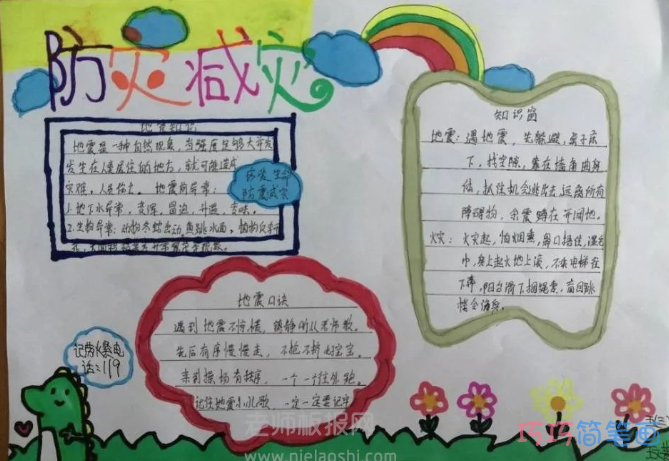 防灾减灾
地震知识
地震是一种自然现象，当强度足够大并
发生在人类居住的地方，就可能造成
灾难，人员伤亡。地震前异常：
1.地下水异常，变浑，冒泡，升温，变味。
知识窗
地震：遇地震，先躲避，桌子床
下，找空隙，靠在墙角曲身
体，抓住机会逃出去，远离所有
障碍物，余震蹲在开阔地。
火灾：火灾起，怕烟熏，鼻口捂住，湿毛
巾，身上起火地上滚，不乘电梯往
下奔，阳台滑下捆绳索，盲目跳
楼会伤身。
地震口诀
遇到地震不惊慌，镇静听从老师教。
先后有序慢慢走，不抢不断好宝宝。
来到操场有秩序，一个一个往外跑。
记住地震小儿歌，一次一定要记牢
记劳火景电
话：119
老师板报网
www.pielaoshi.com
巧巧简笔画